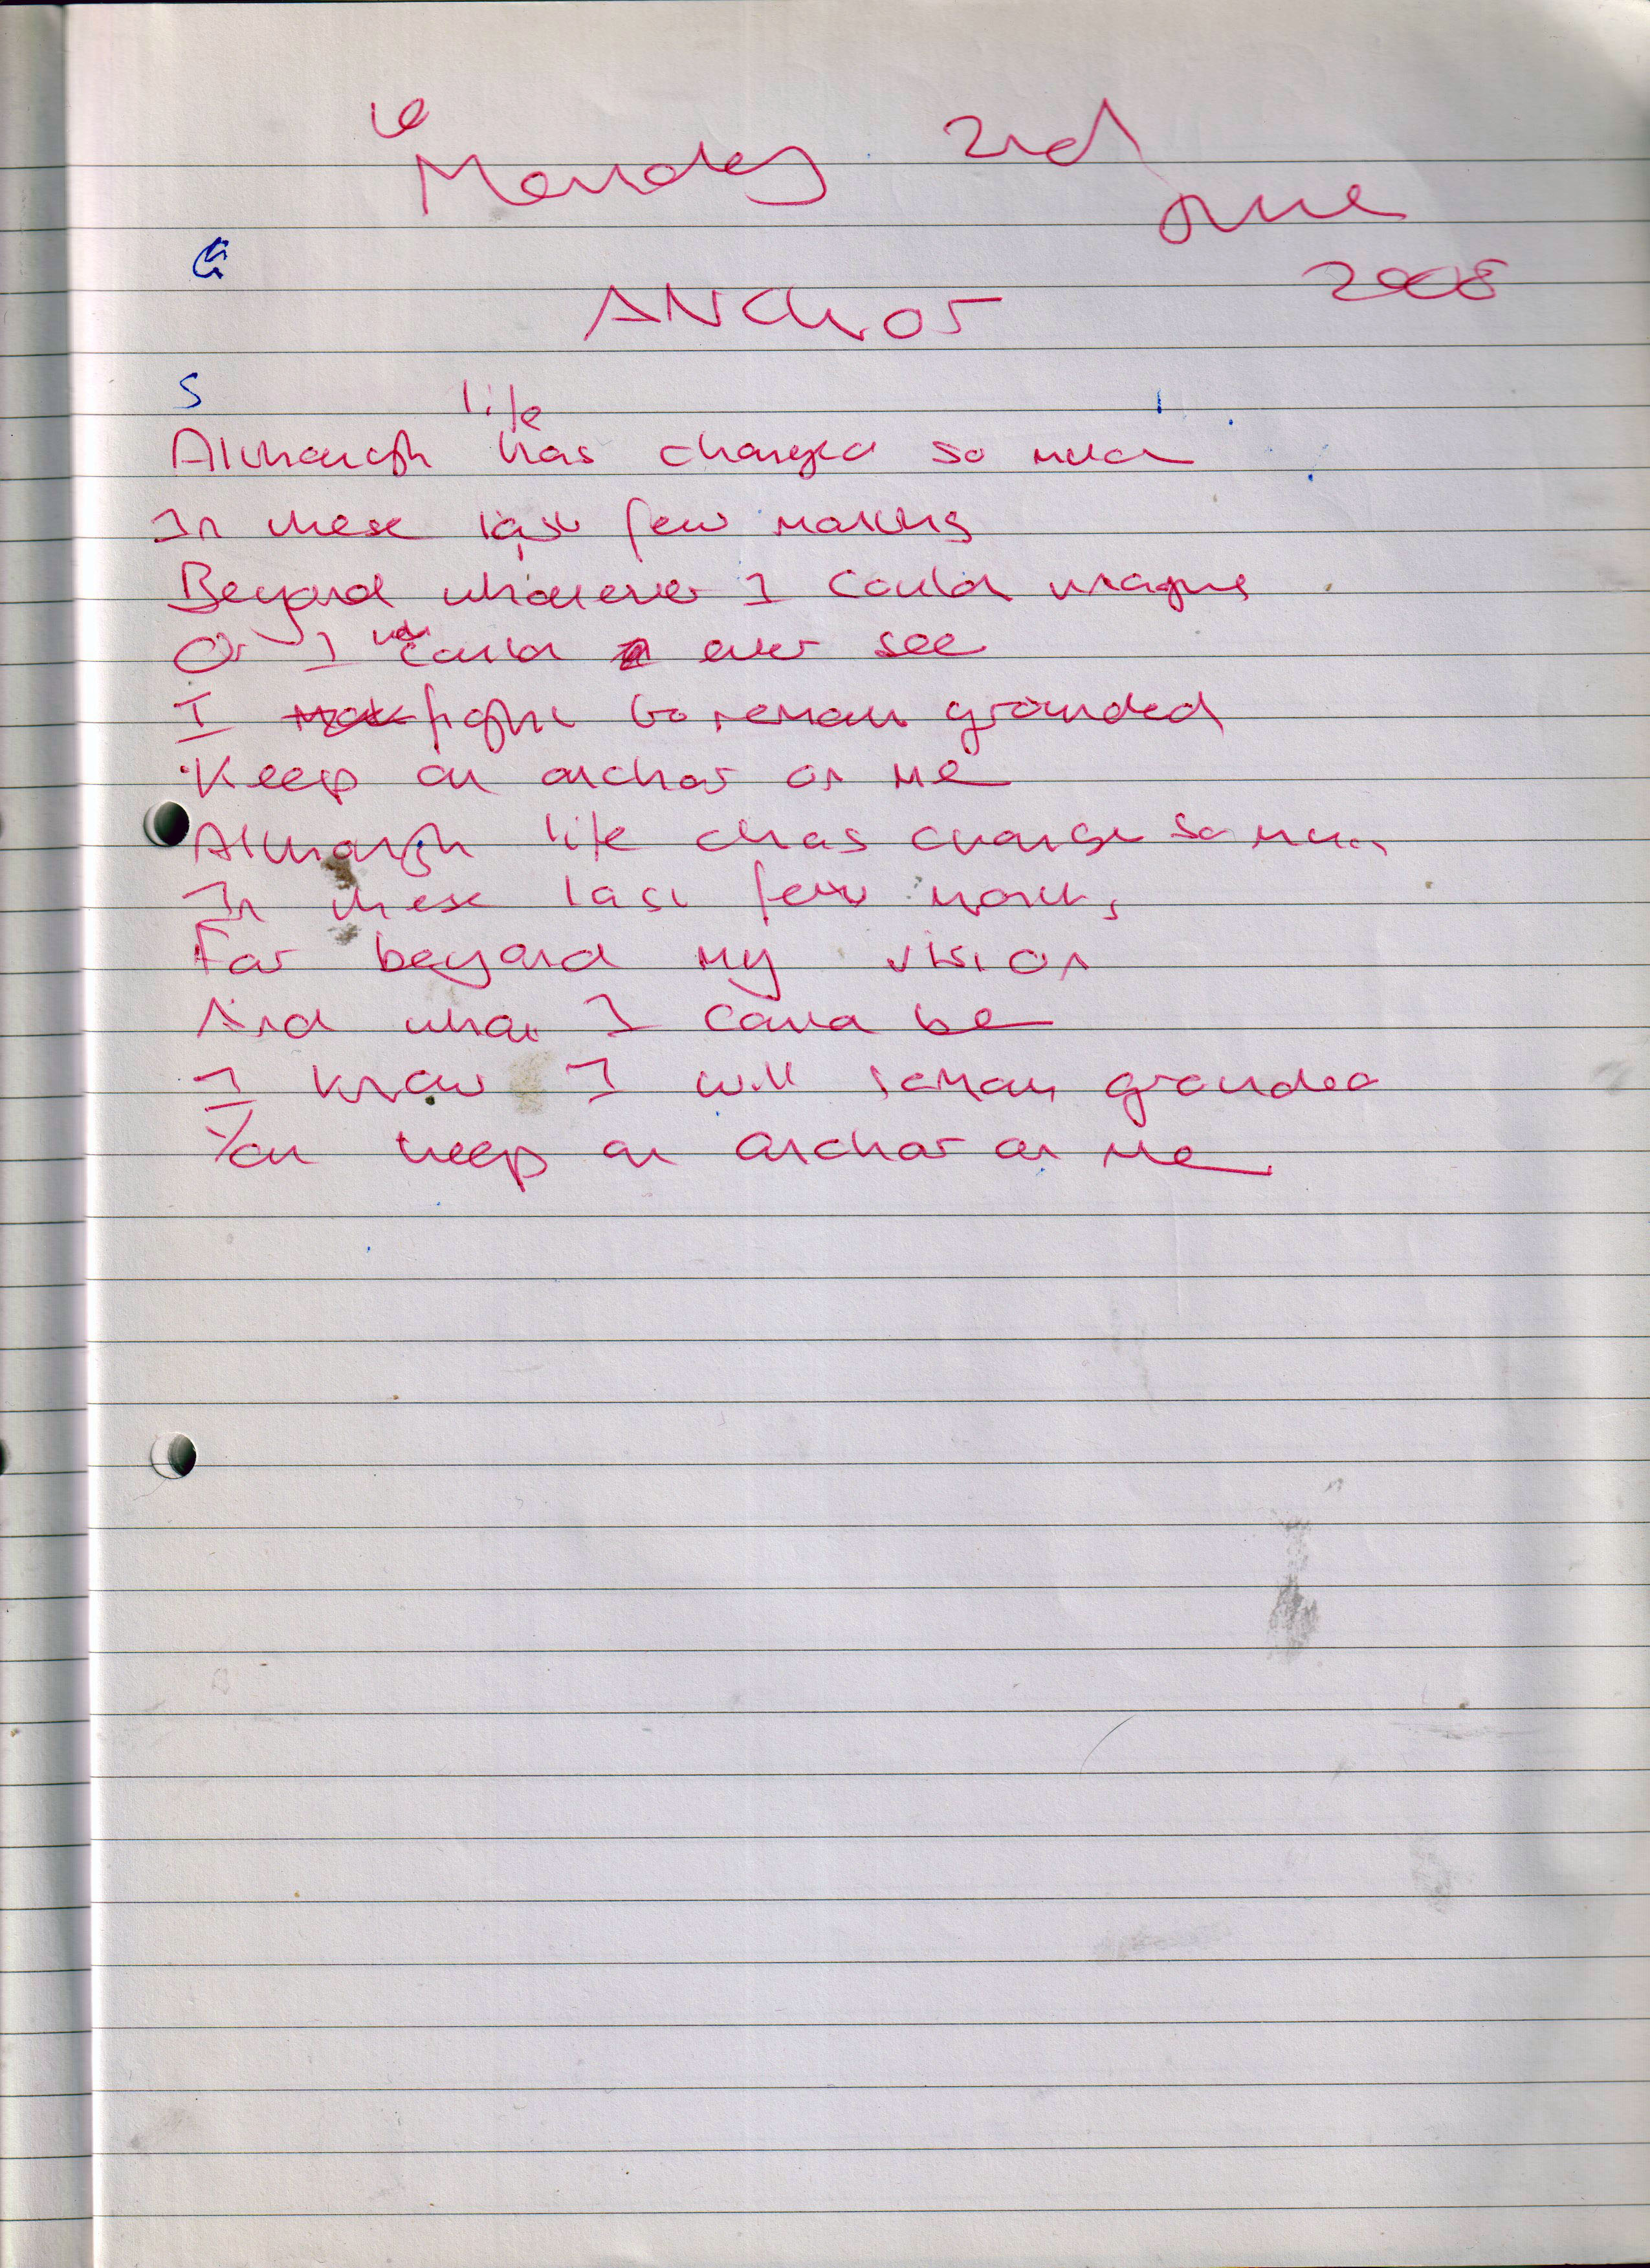 Monday 2nd
June
2008
G
ANCHOr
S
life
Although has changed so much
In these last few months
Beyond whatever I could imagine
Or I could ever see
I fight to remain grounded
Keep an anchor on me
Although life chas change so much
In these last few months
Far beyond my vision
And what I could be
I know I will remain grounded
You keep an anchor on me